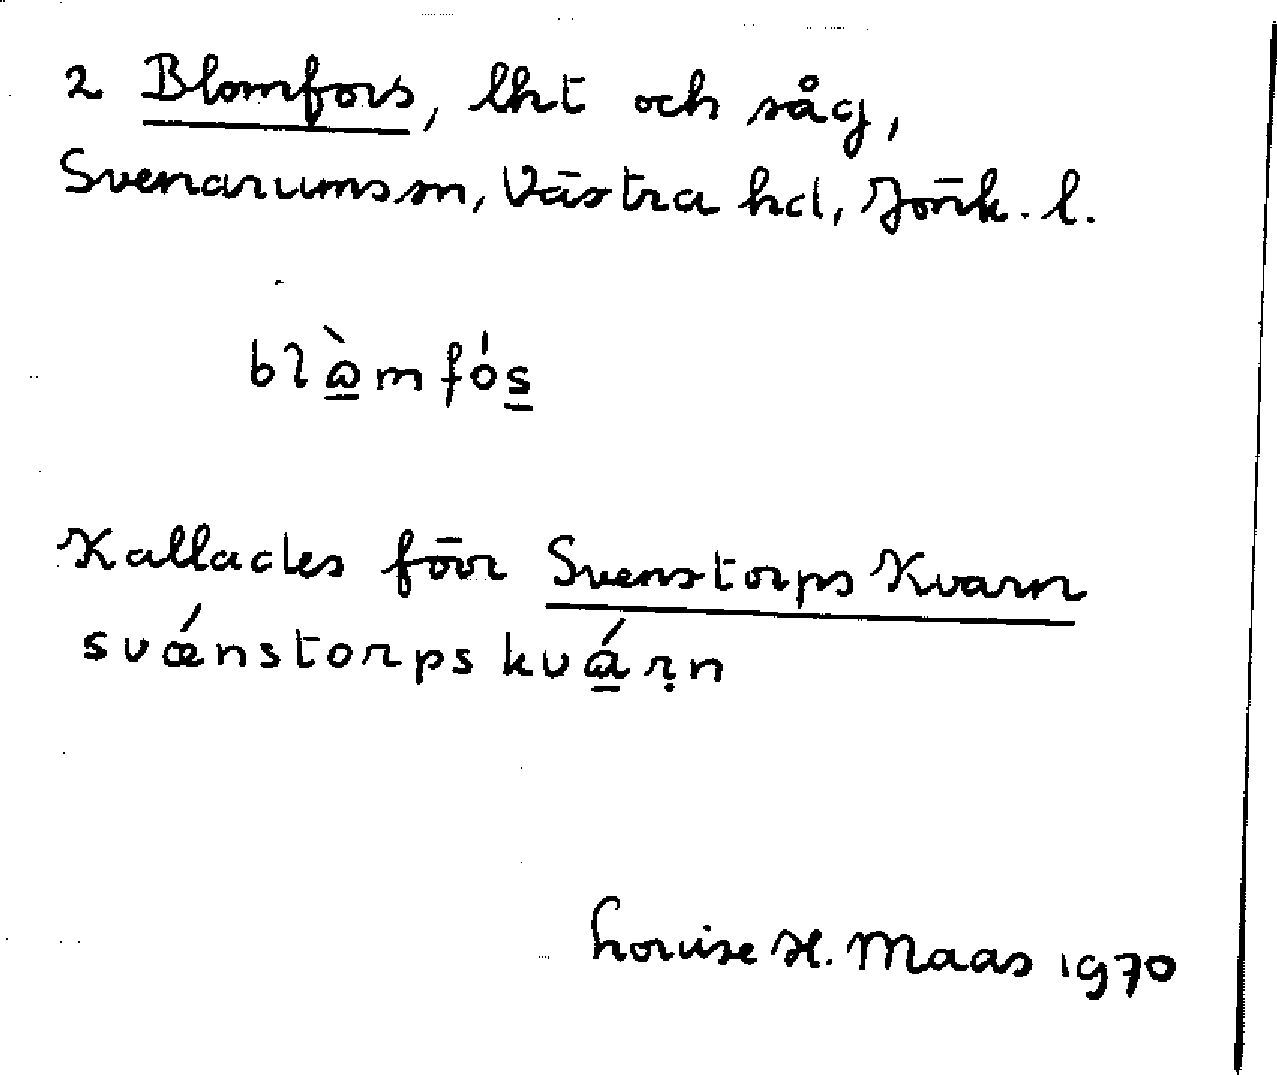 2 Blomfors, lht och såg,
Svenarums sn, Västra hd, Jönk. l.
blὼmfós
Kallades förr Svenstorps Kvarn
svǽnstorps kvárṇ
Louise H. Maas 1970